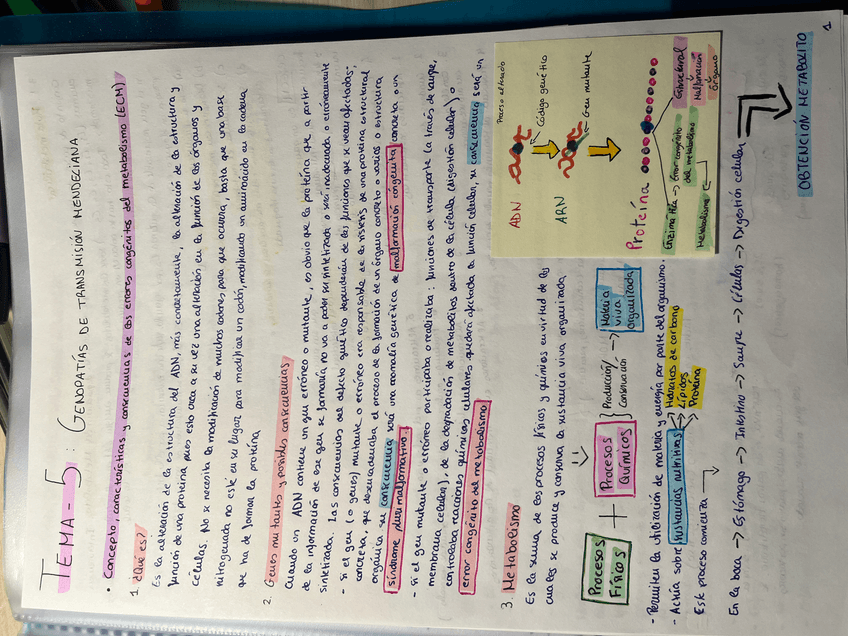 TEMA-5: GENOPATÍAS DE TRANSMISIÓN MENDELIANA
• Concepto, características y consecuencias de los errores congénitos del metabolismo (ECM)
1. ¿Qué es?
Es la alteración de la estructura del ADN, más concretamente, la alteración de la estructura y
función de una proteína pues esto crea a su vez una alteración en la función de los órganos y
células. No se necesita la modificación de muchos codones para que ocurra, basta que una base
nitrogenada no esté en su lugar para modificar un codón, modificando un aminoácido en la cadena
que ha de formar la proteína
2. Genes mutantes y posibles consecuencias
Cuando un ADN contiene un gen erróneo o mutante, es obvio que la proteína que a partir
de la información de ese gen se formaría no va a poder ser sintetizada o será inadecuada o erróneamente
sintetizada. Las consecuencias del defecto genético dependerán de las funciones que se vean afectadas:
- Si el gen (o genes) mutante o erróneo era responsable de la síntesis de una proteína estructural
concreta, que desencadenaba el proceso de la formación de un órgano concreto o varios o estructura
orgánica su consecuencia será una anomalía genética de malformación congénita concreta o un
síndrome plurimalformativo.
- Si el gen mutante o erróneo participaba o realizaba: funciones de transporte (a través de sangre,
membrana celular), de la degradación de metabolitos dentro de la célula (digestión celular) o
controlaba reacciones químicas celulares quedará afectada la función celular, su consecuencia será un
error congénito del metabolismo
3. Metabolismo
Es la suma de los procesos físicos y químicos en virtud de los
cuales se produce y conserva la sustancia viva organizada
Procesos Físicos + Procesos Químicos } Producción / Conservación → Materia viva organizada
- Permiten la utilización de materia y energía por parte del organismo.
- Actúa sobre sustancias nutritivas → Hidratos de carbono
→ Lípidos
→ Proteína
Este proceso comienza
En la boca → Estómago → Intestino → Sangre → Células → Digestión celular
OBTENCIÓN METABOLITO
Proceso alterado
ADN
Código genético
ARN
Gen mutante
Proteína
Enzimática → Error congénito del metabolismo
Metabolismo
Estructural
Malformación
Órgano
1